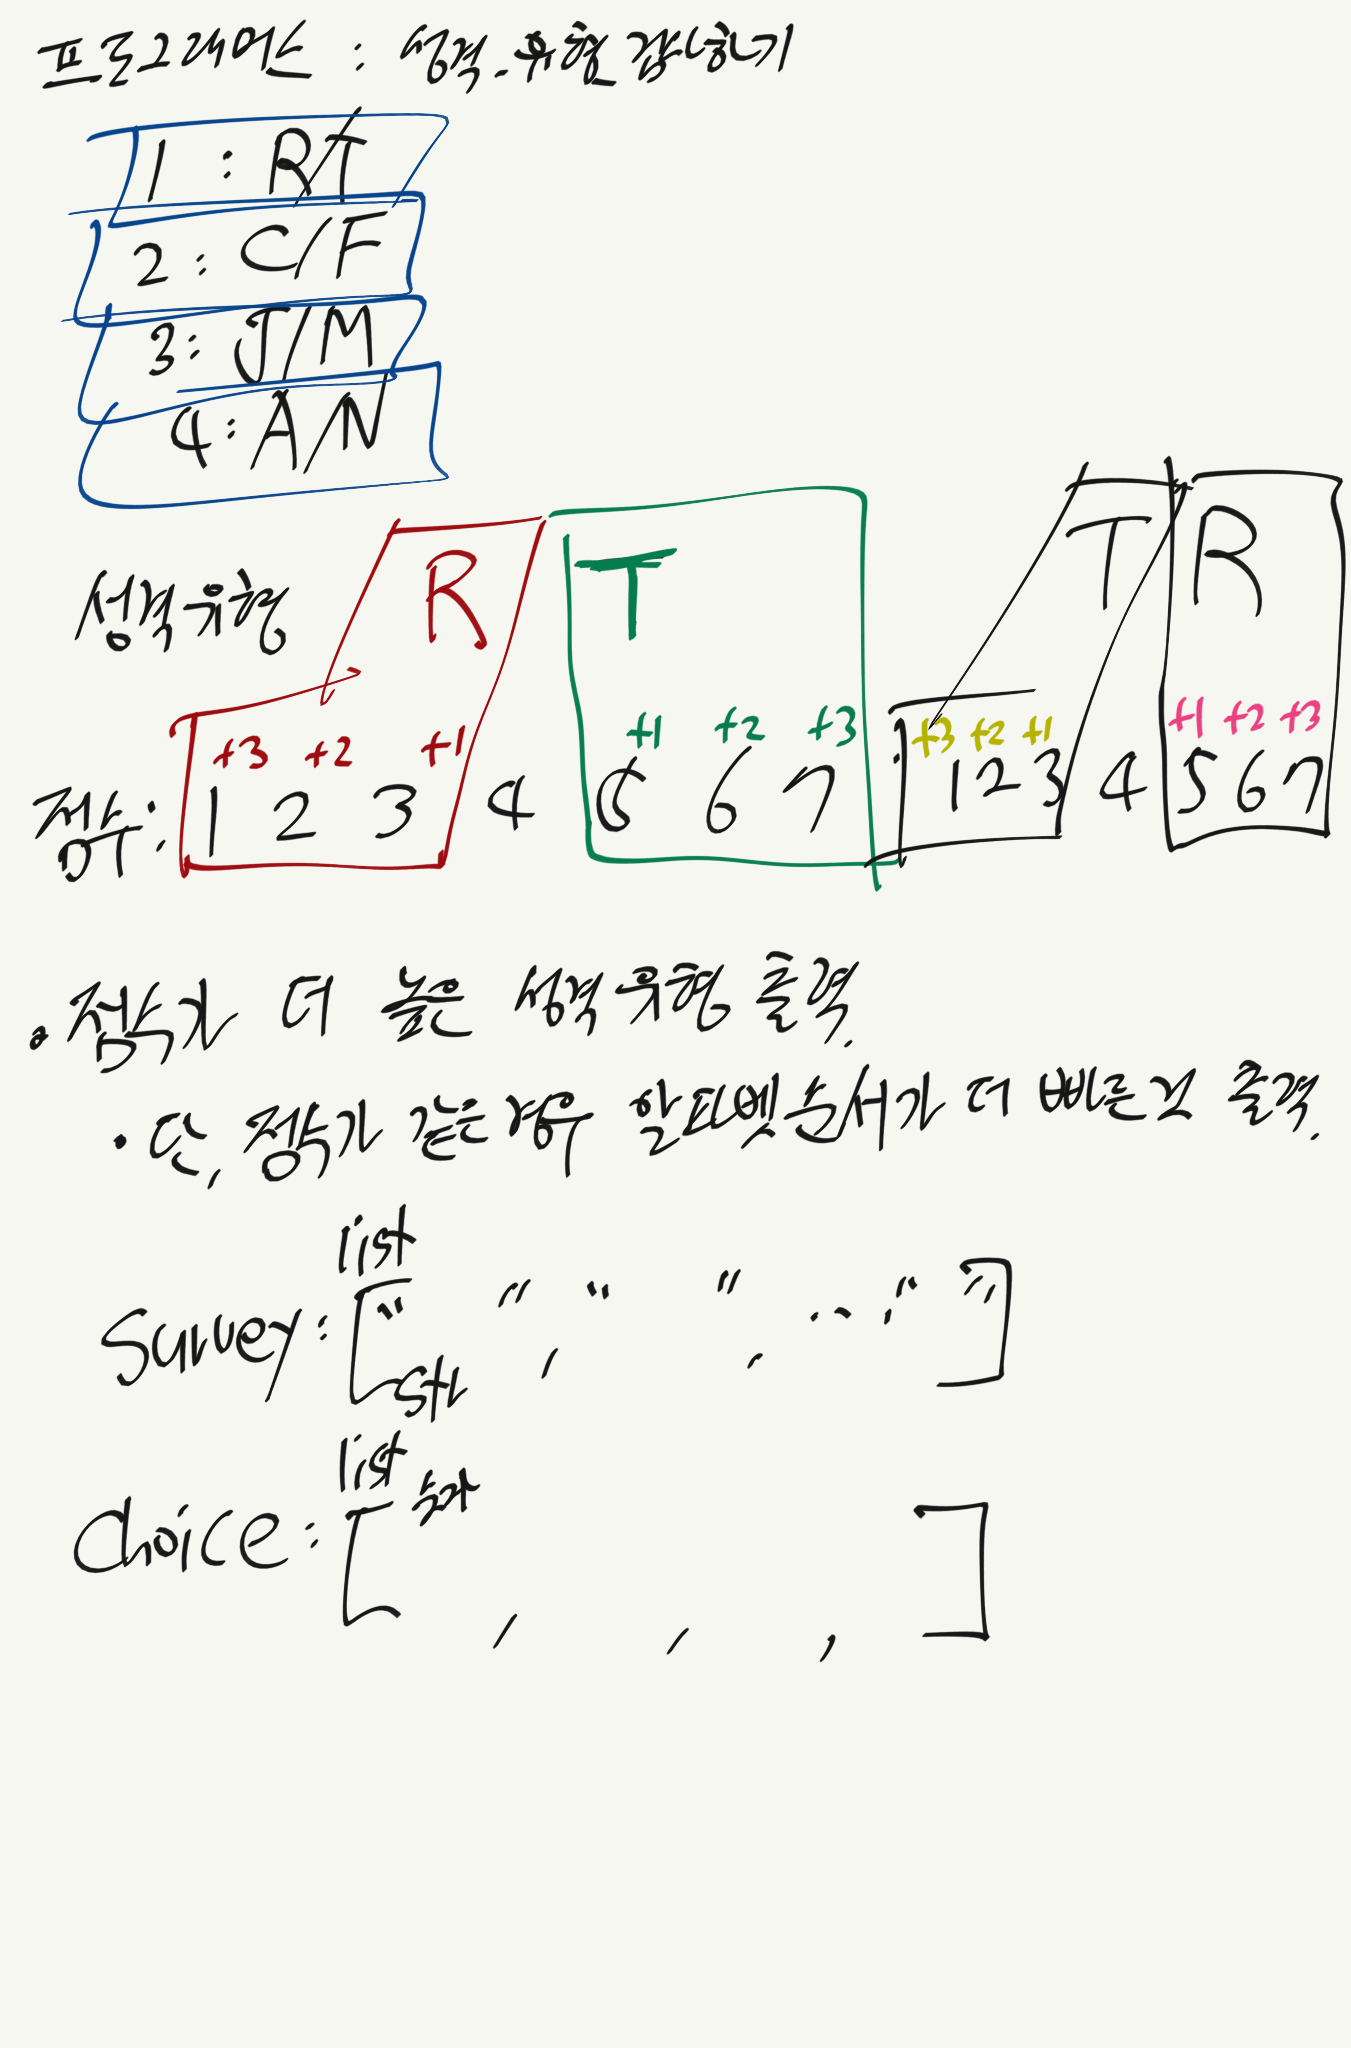 프로그래머스 : 성격 유형 검사하기
1 : R/T
2 : C/F
3 : J/M
4 : A/N
성격유형 R T T R
+3 +2 +1 +1 +2 +3 +3 +2 +1 +1 +2 +3
점수 : 1 2 3 4 5 6 7 1 2 3 4 5 6 7
• 점수가 더 높은 성격유형 출력.
• 단, 점수가 같은 경우 알파벳순서가 더 빠른 것 출력.
list
Survey : [" " , " " , ... , " "]
str
list
숫자
Choice : [ , , , ]